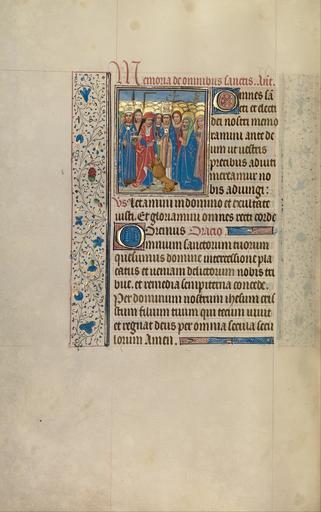 Memoria de omnibus sanctis. Ant.
Omnes sā
cti et electi
dei nostri memo
ramini ante de
um ut vestris
precibus adiuti
mereamur vo
bis adiungi:
Vs Letamini in domino et exultate
iusti. Et gloriamini omnes recti corde
Oremus Oracio
Omnium sanctorum tuorum
quesumus domine intercessione pla
catus et veniam delictorum nobis tri
bue. et remedia sempiterna concede.
Per dominum nostrum ihesum cris
stum filium tuum qui tecum vivit
et regnat deus per omnia secula secu
lorum Amen.